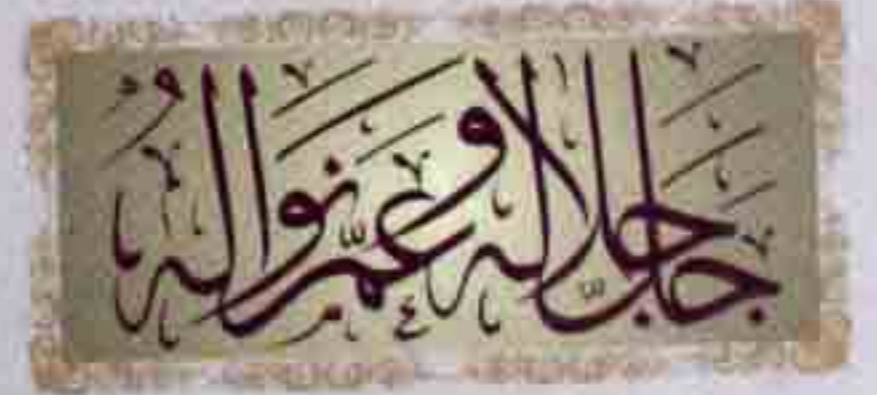 جَلَّ جَلَالُهُ وَعَمَّ نَوَالُهُ